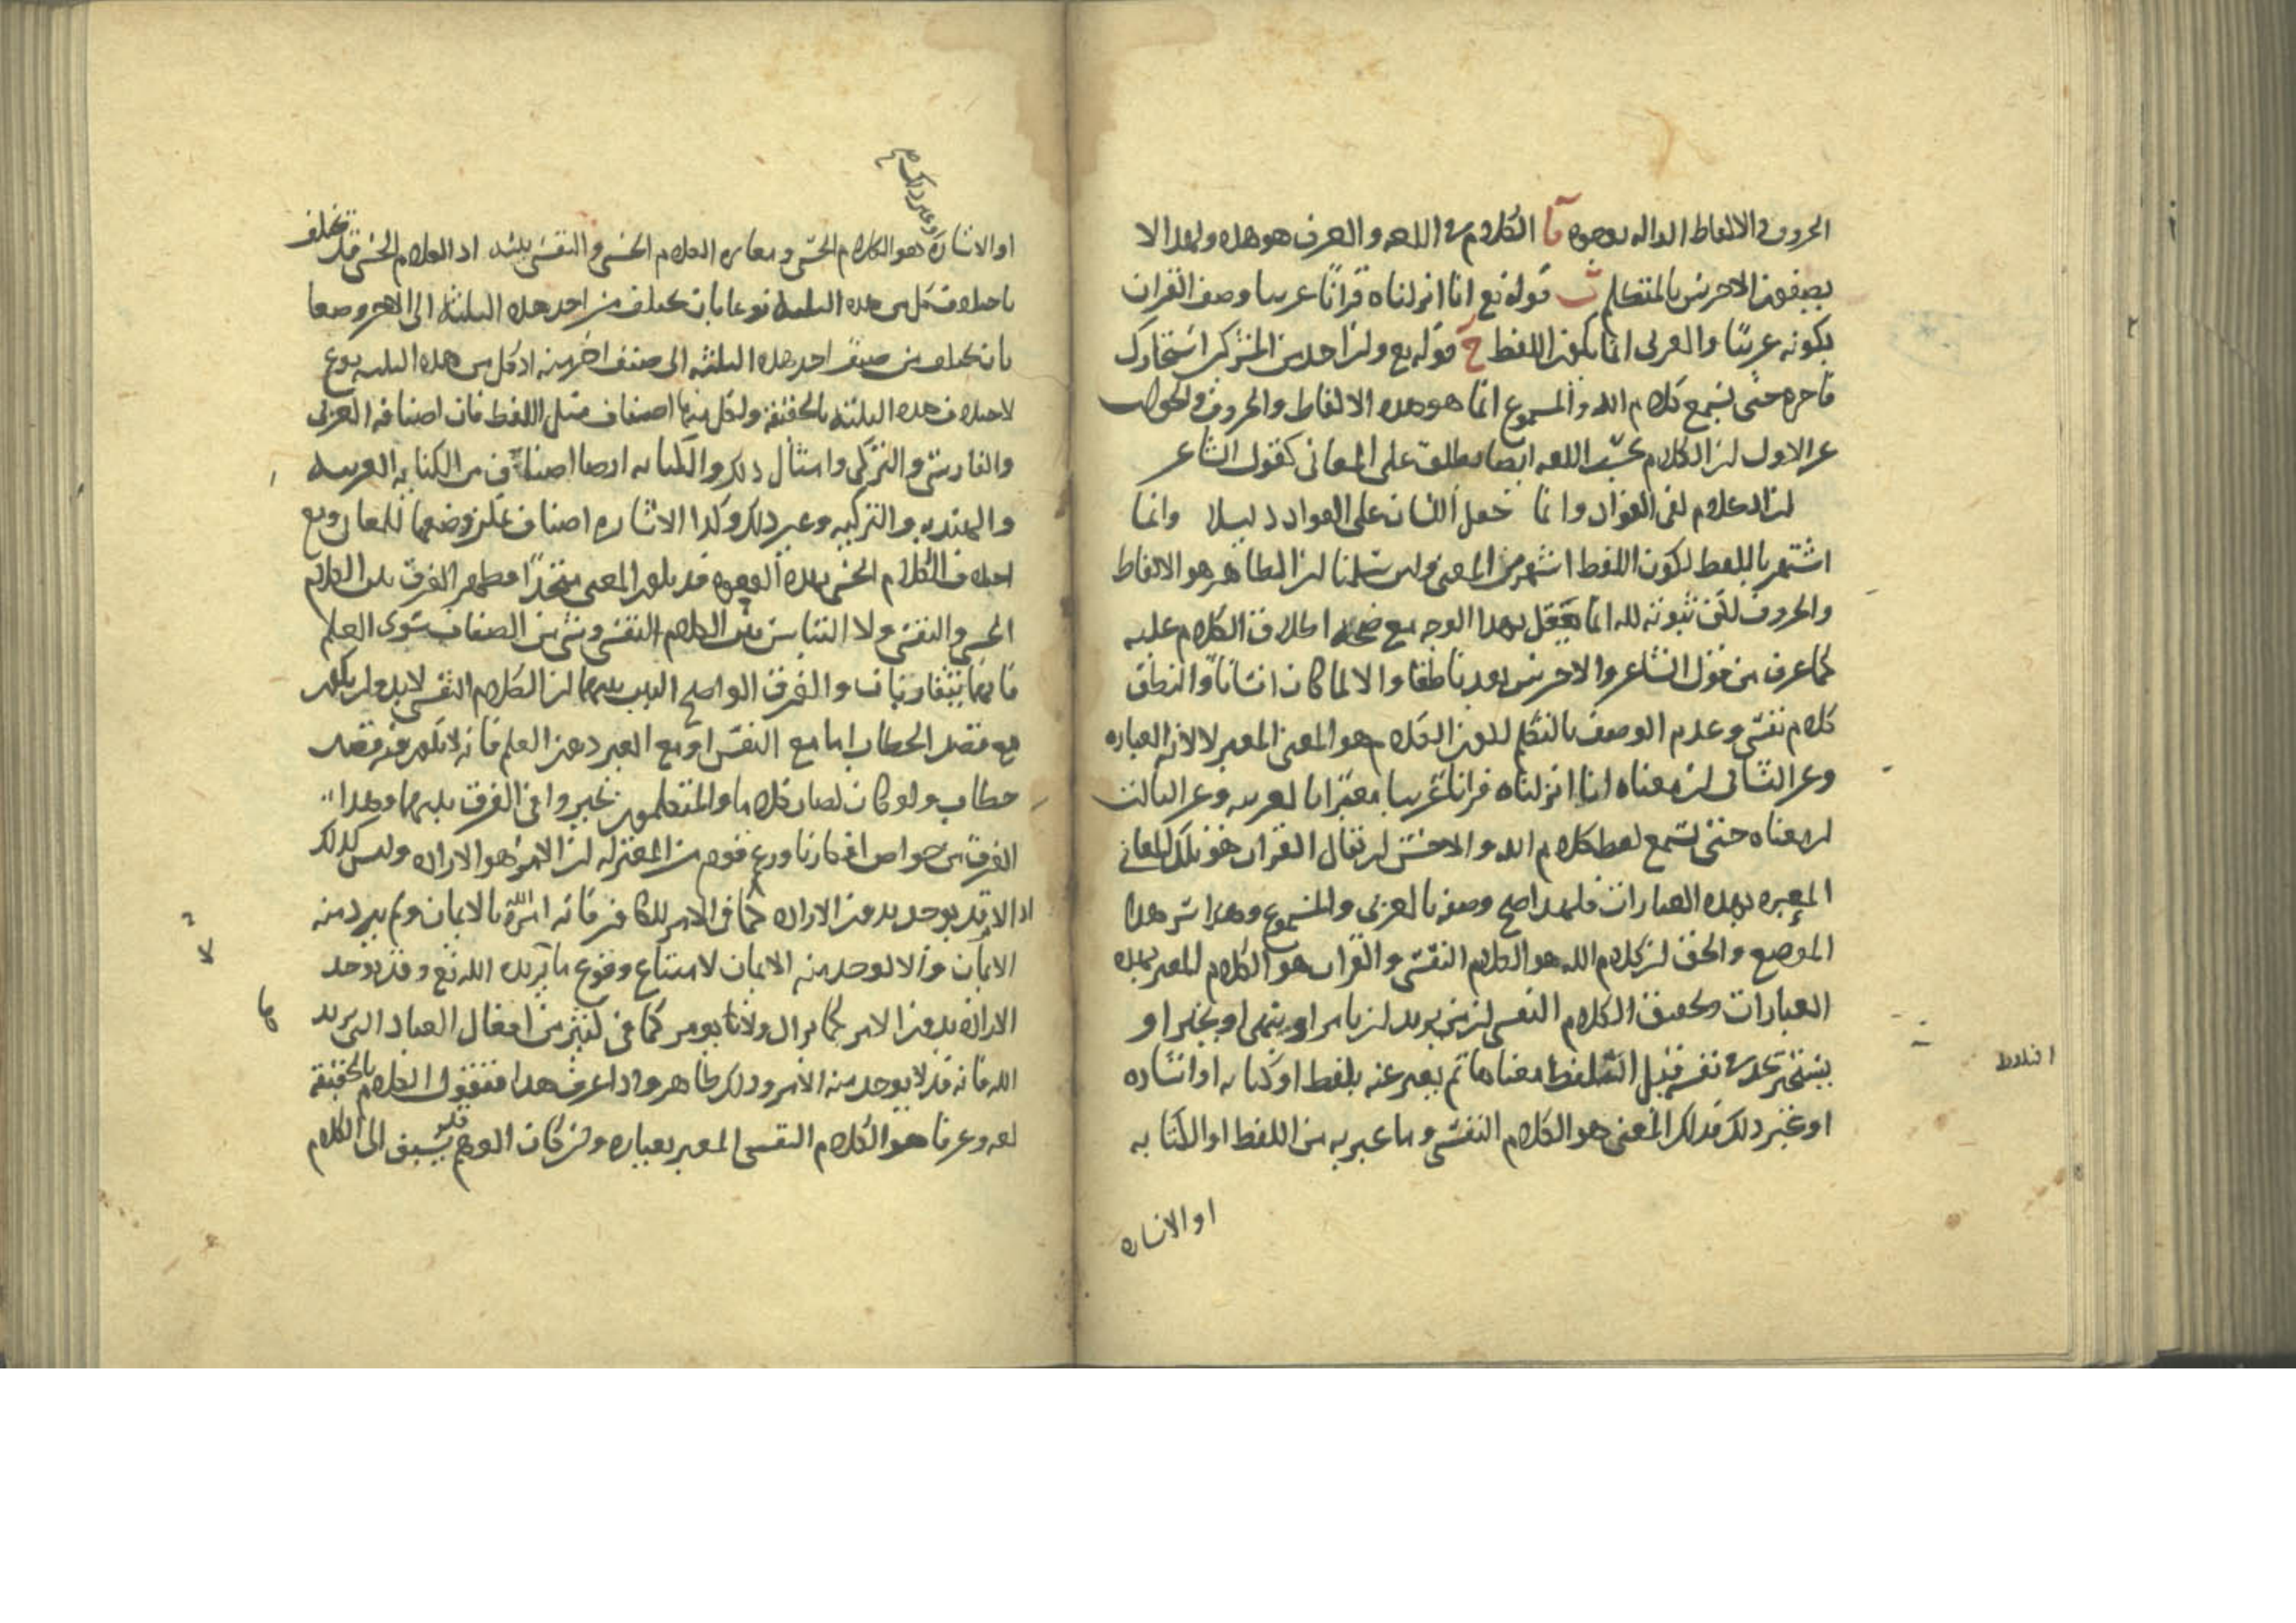 الحروف والالفاظ الداله بوجوه آ الكلام في اللغه والعرف هو هذه ولهذا لا
يصفون الاخرس بالمتكلم ب قوله تع انا انزلناه قرآنا عربيا وصف القران
بكونه عربيا والعربي انما يكون اللفظ ج قوله تع وان احد من المشركين استجارك
فاجره حتى يسمع كلام الله والمسموع انما هو هذه الالفاظ والحروف والجواب
عن الاول ان الكلام بحسب اللغه ايضا يطلق على المعاني كقول الشاعر
ان الكلام لفي الفواد وانما جعل اللسان على الفواد دليلا وانما
اشتهر باللفظ لكون اللفظ اشهر من المعنى ولئن سلمنا ان الظاهر هو الالفاظ
والحروف لكن ثبوته لله انما يعقل بهذا الوجه مع صحه اطلاق الكلام عليه
كما عرف من قول الشاعر والاخرس يعد ناطقا والا لما كان انسانا والنطق
كلام نفسي وعدم الوصف بالتكلم لكون الكلام هو المعنى المعبر لا لان العباره
وعن الثاني ان معناه انا انزلناه قرانا عربيا معبرا بالعربيه وعن الثالث
ان معناه حتى يسمع لفظ كلام الله والاحسن ان يقال القران هو تلك المعاني
المعبره بهذه العبارات فلهذا صح وصفه بالعربي والمسموع وهذا سر هذا
الموضع والحق ان كلام الله هو الكلام النفسي والقران هو الكلام المعبر بهذه
العبارات وتحقيق الكلام النفسي ان من يريد ان يامر او ينهى او يخبر او
يستخبر يجد في نفسه قبل التلفظ معناها ثم يعبر عنه بلفظ او كتابه او اشاره
التلفظ
او غير ذلك فذلك المعنى هو الكلام النفسي وما عبر به من اللفظ او الكتابه
او الاشاره
وغير ذلك
او الاشاره هو الكلام الحسي ومغايره الكلام الحسي والنفسي بينه اذ الكلام الحسي قد يختلف
باختلاف كل من هذه الثلثه نوعا بان يختلف من احد هذه الثلثه الى الاخر وصنفا
بان يختلف من صنف احد هذه الثلثه الى صنف اخر منه اذ كل من هذه الثلثه نوع
لاختلاف هذه الثلثه بالحقيقه ولكل منها اصناف مثل اللفظ فان اصنافه العربي
والفارسي والتركي وامثال ذلك والكتابه ايضا اصناف من الكتابه العربيه
والهنديه والتركيه وغير ذلك وكذا الاشاره اصناف يمكن وضعها للمعاني ومع
اختلاف الكلام الحسي بهذه الوجوه قد يكون المعنى متحدا فظهر الفرق بين الكلام
الحسي والنفسي ولا التباس بين الكلام النفسي وشي من الصفات سوى العلم
فانهما يتقاربان والفرق الواضح البين بينهما ان الكلام النفسي لا بد وان يكون
مع قصد الخطاب اما مع النفس او مع الغير دون العلم فانه لا يكون فيه قصد
خطاب ولو كان لصار كلاما والمتكلمون تحيروا في الفرق بينهما وهذا
الفرق من خواص افكارنا وزعم قوم من المعتزله ان الامر هو الاراده وليس كذلك
اذ الامر قد يوجد بدون الاراده كما في الامر للكافر فانه امره الله بالايمان ولم يرد منه
الايمان والا لوجد منه الايمان لامتناع وقوع ما يريده الله تع وقد يوجد
الاراده بدون الامر كما يراد ولا يومر كما في كثير من افعال العباد التي يريد
الله فانه قد لا يوجد منه الامر وذلك ظاهر واذا عرف هذا فنقول الكلام بالحقيقه
لغه وعرفا هو الكلام النفسي المعبر بعباره وان كان الوهم قد يسبق الى الكلام